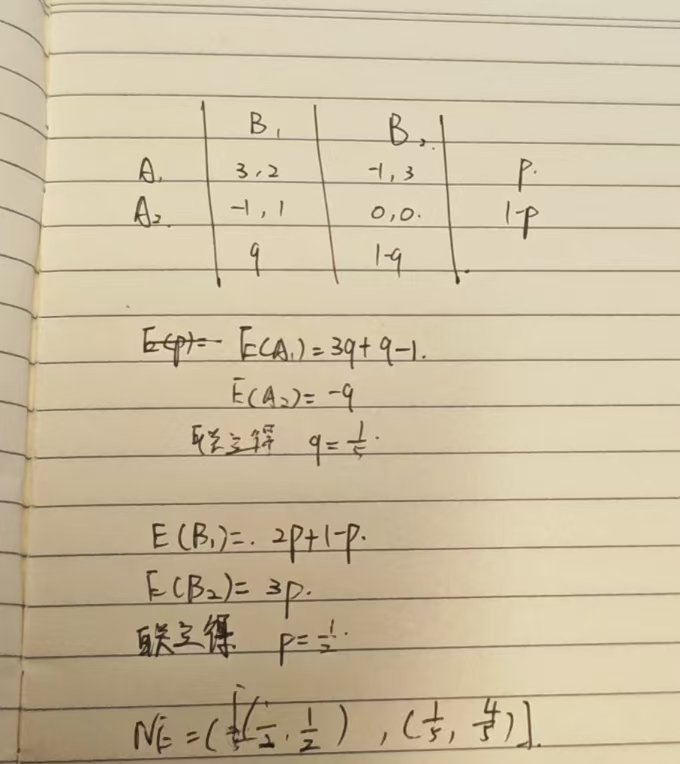 B₁ B₂.
A₁ 3,2 -1,3 p.
A₂ -1,1 0,0. 1-p
q 1-q
E(p)= E(A₁)=3q+q-1.
E(A₂)=-q
联立得 q=1/5.
E(B₁)=. 2p+1-p.
E(B₂)= 3p.
联立得 p=1/2.
NE=([(1/2, 1/2), (1/5, 4/5)].